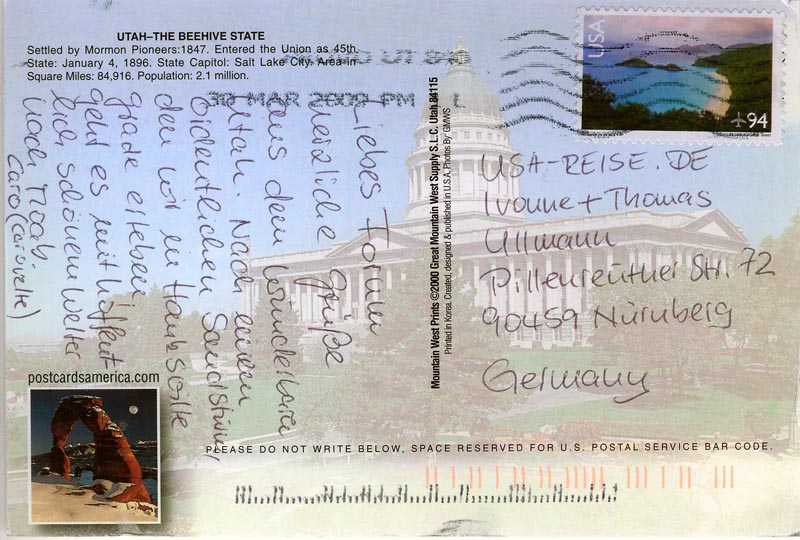 UTAH–THE BEEHIVE STATE
Settled by Mormon Pioneers:1847. Entered the Union as 45th
State: January 4, 1896. State Capitol: Salt Lake City. Area in
Square Miles: 84,916. Population: 2.1 million.
MAR PM
USA
94
Liebes Forum
herzliche Grüße
aus dem wunderbaren
Utah. Nach einem
ordentlichen Sandsturm,
den wir in Hanksville
grade erleben,
geht es mit hoffent
lich schönem Wetter
nach Moab.
Caro (carovette)
Mountain West Prints ©2000 Great Mountain West Supply S.L.C. Utah 84115
Printed in Korea. Created, designed & published in U.S.A. Photos By: GMWS
USA-REISE.DE
Ivonne + Thomas
Ullmann
Pillenreuther Str. 72
90459 Nürnberg
Germany
postcardsamerica.com
PLEASE DO NOT WRITE BELOW, SPACE RESERVED FOR U.S. POSTAL SERVICE BAR CODE.